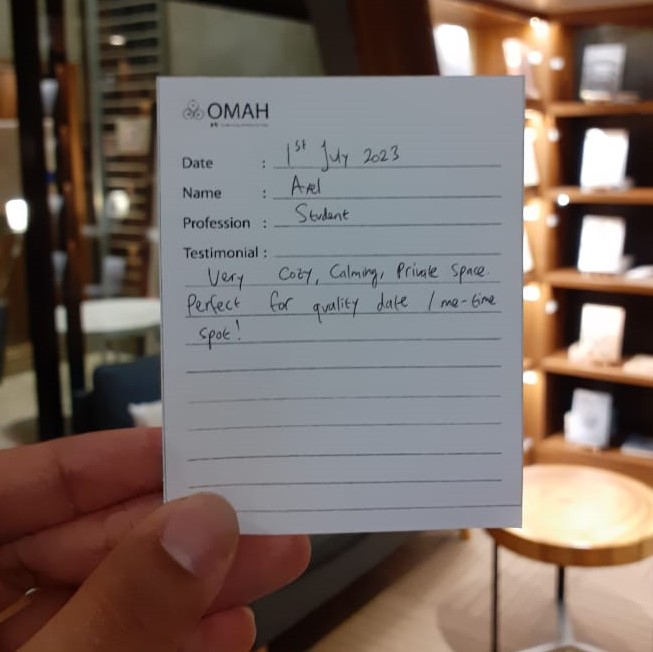 OMAH
Date : 1st July 2023
Name : Axel
Profession : Student
Testimonial :
Very Cozy, Calming, Private Space.
Perfect for quality date / me-time
spot!